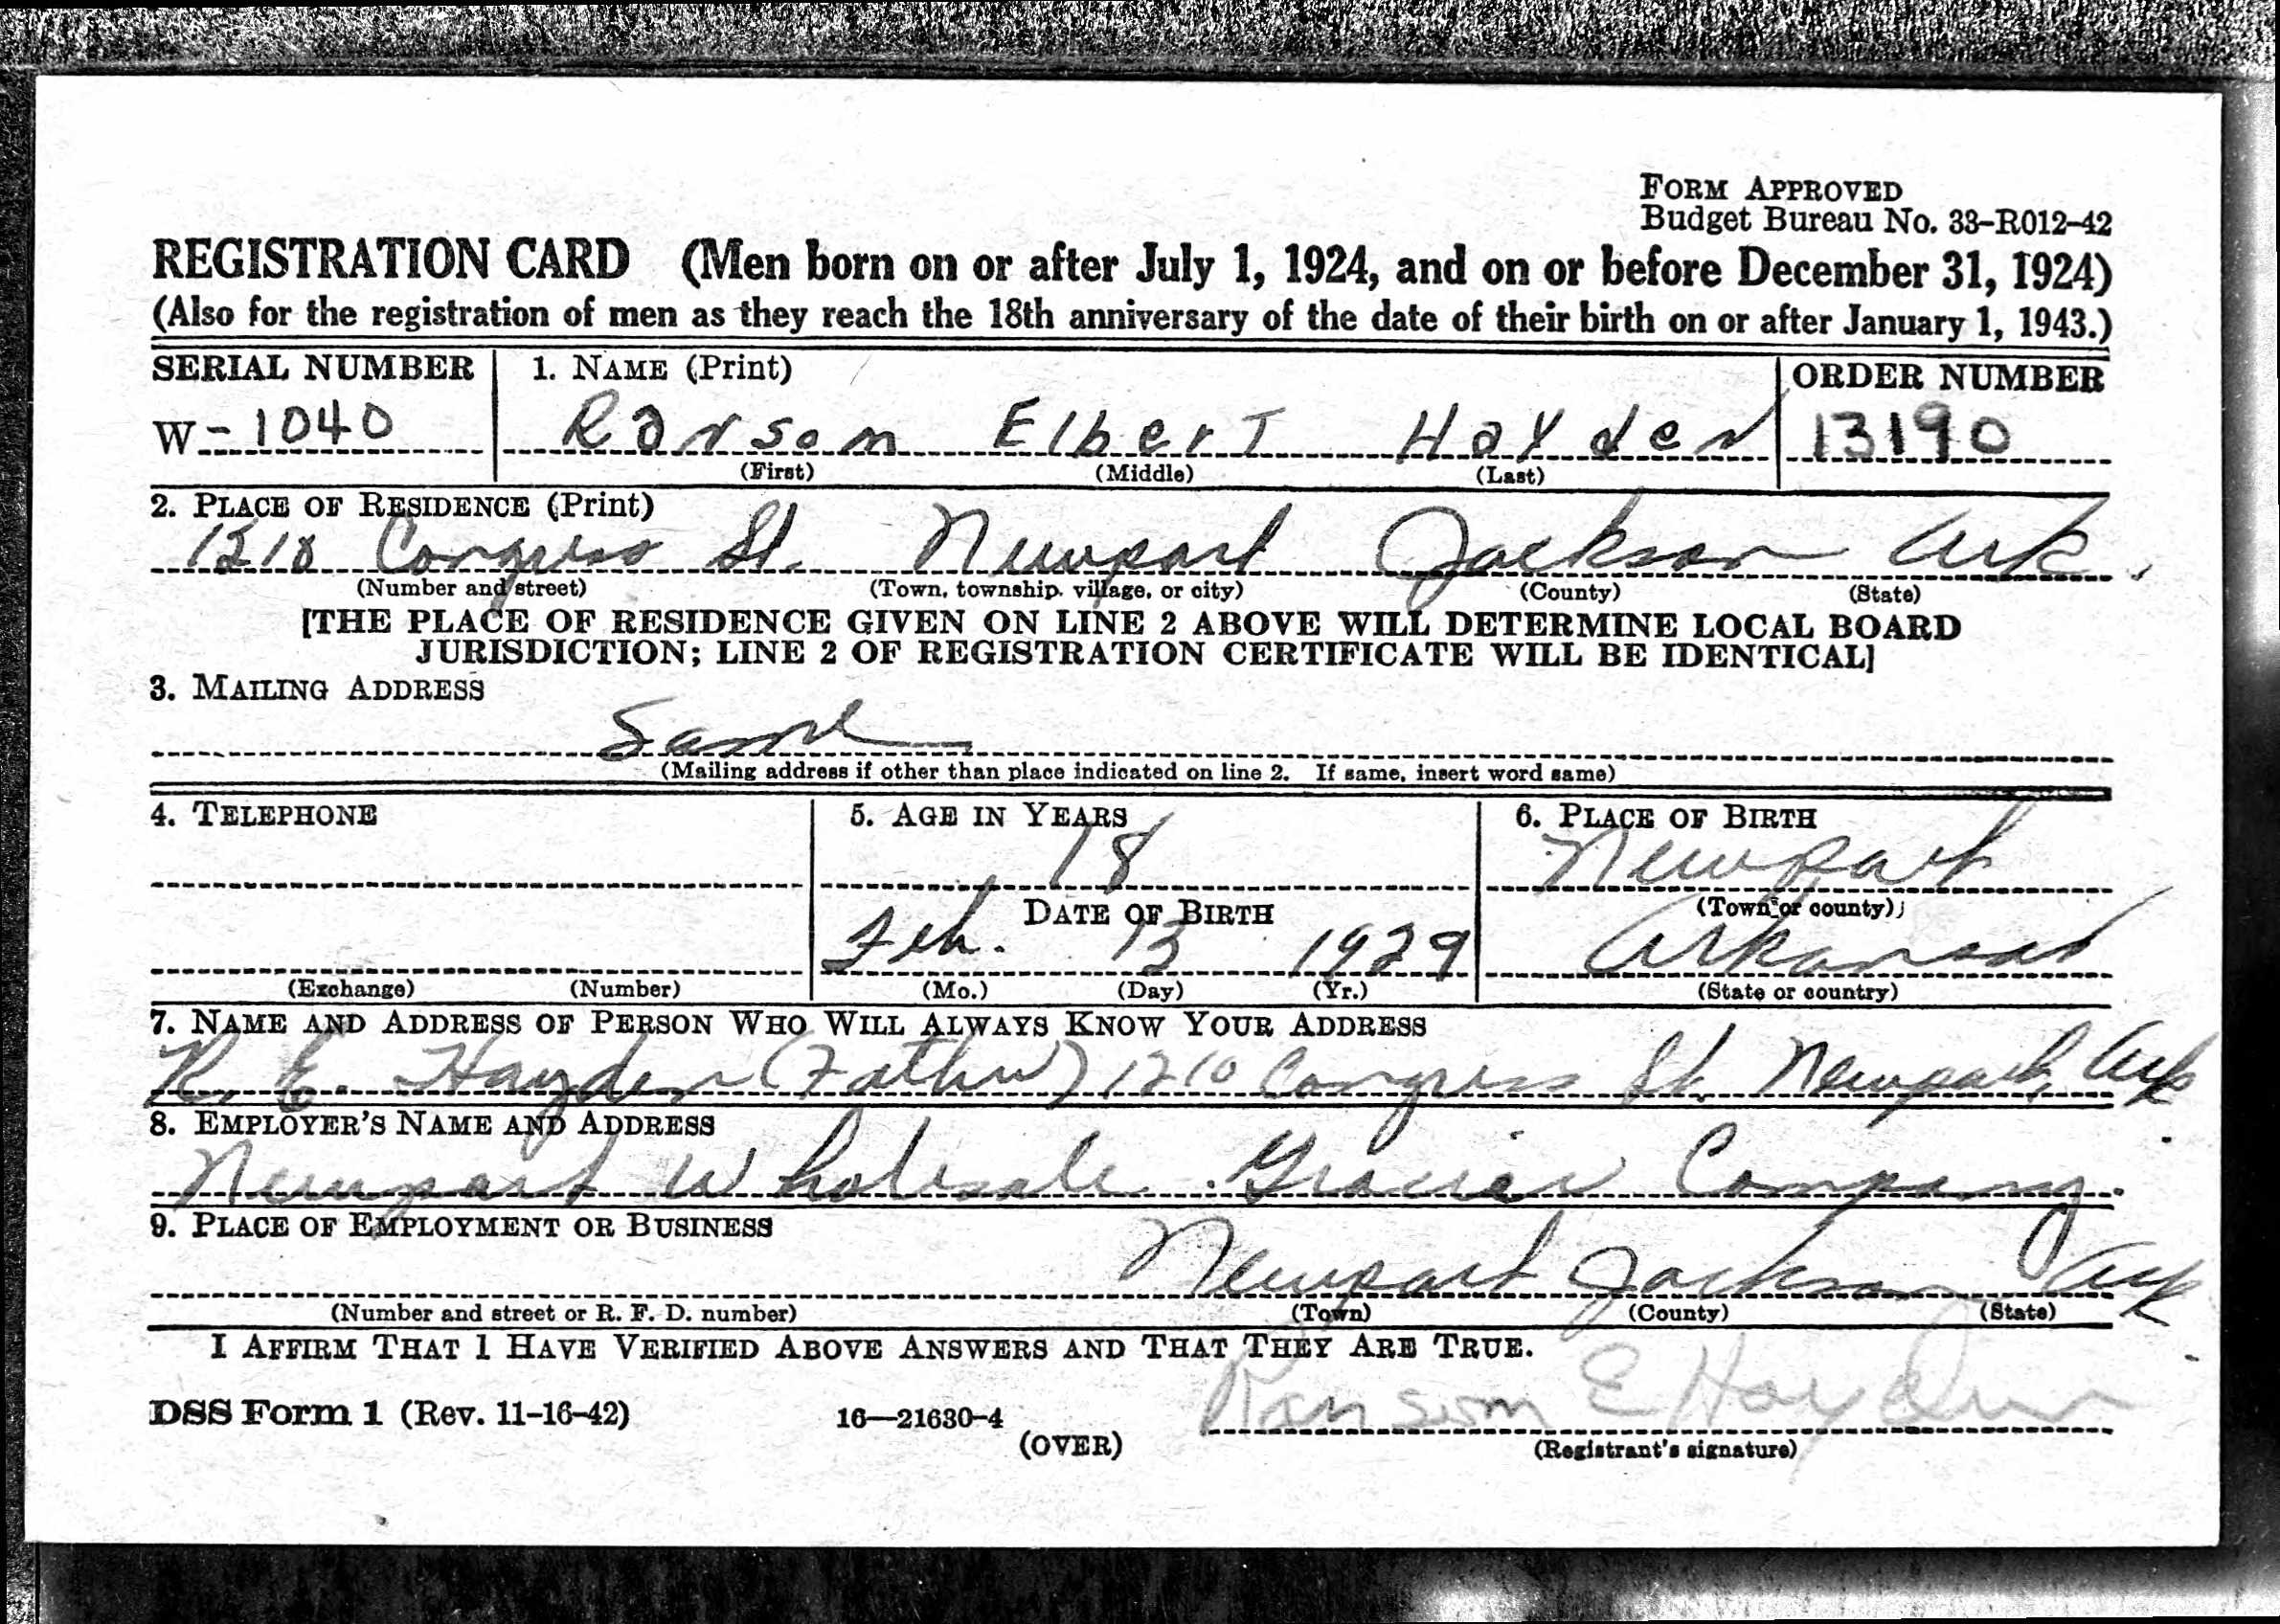 FORM APPROVED
Budget Bureau No. 33-R012-42
REGISTRATION CARD (Men born on or after July 1, 1924, and on or before December 31, 1924)
(Also for the registration of men as they reach the 18th anniversary of the date of their birth on or after January 1, 1943.)
SERIAL NUMBER 1. NAME (Print) ORDER NUMBER
W-1040 Ransom Elbert Hayden 13190
(First) (Middle) (Last)
2. PLACE OF RESIDENCE (Print)
1210 Congress St. Newport Jackson Ark.
(Number and street) (Town, township, village, or city) (County) (State)
[THE PLACE OF RESIDENCE GIVEN ON LINE 2 ABOVE WILL DETERMINE LOCAL BOARD
JURISDICTION; LINE 2 OF REGISTRATION CERTIFICATE WILL BE IDENTICAL]
3. MAILING ADDRESS
Same
(Mailing address if other than place indicated on line 2. If same, insert word same)
4. TELEPHONE 5. AGE IN YEARS 6. PLACE OF BIRTH
18 Newport
DATE OF BIRTH (Town or county)
Feb. 13 1929 Arkansas
(Exchange) (Number) (Mo.) (Day) (Yr.) (State or country)
7. NAME AND ADDRESS OF PERSON WHO WILL ALWAYS KNOW YOUR ADDRESS
R. E. Hayden (Father) 1210 Congress St. Newport, Ark
8. EMPLOYER'S NAME AND ADDRESS
Newport Wholesale Grocier Company.
9. PLACE OF EMPLOYMENT OR BUSINESS
Newport Jackson Ark
(Number and street or R. F. D. number) (Town) (County) (State)
I AFFIRM THAT I HAVE VERIFIED ABOVE ANSWERS AND THAT THEY ARE TRUE.
Ransom E Hayden
DSS Form 1 (Rev. 11-16-42) 16—21630-4 (OVER)
(Registrant's signature)